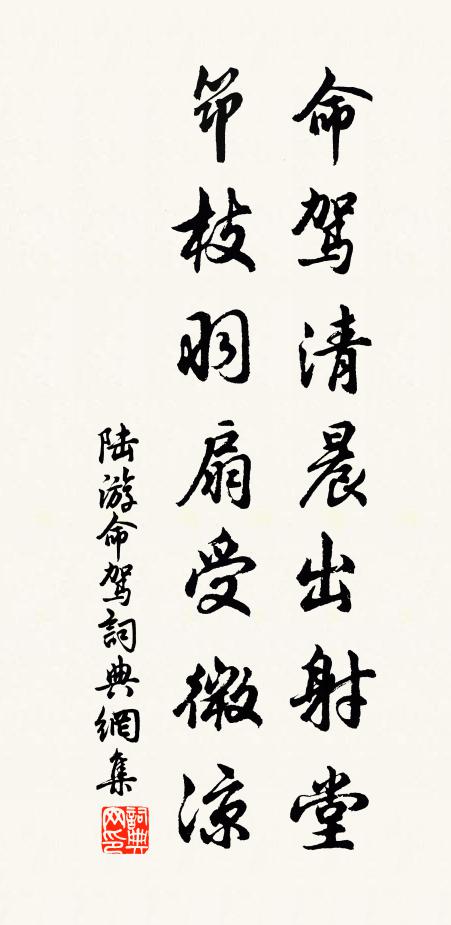 命駕清晨出射堂
笻枝羽扇受微涼
陸游命駕詞典網集
詞典网印